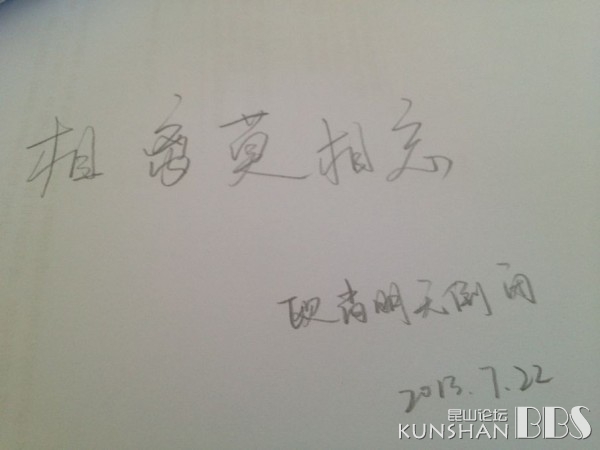 相离莫相忘
欧尚明天倒闭
2013.7.22
昆山论坛
KUNSHAN BBS